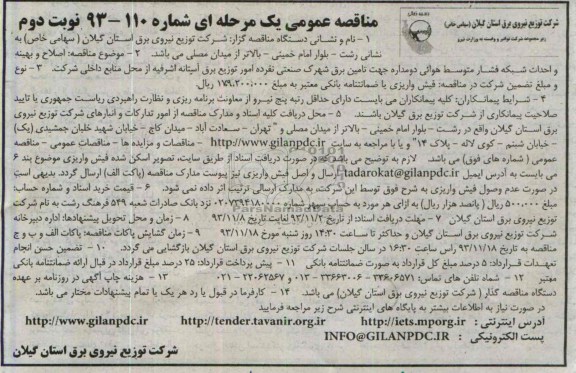 شرکت توزیع نیروی برق استان گیلان (سهامی خاص)
مناقصه عمومی یک مرحله ای شماره ۱۱۰-۹۳ نوبت دوم
۱ - نام و نشانی دستگاه مناقصه گزار: شرکت توزیع نیروی برق استان گیلان (سهامی خاص) به
نشانی رشت - بلوار امام خمینی - بالاتر از میدان مصلی می باشد. ۲ - موضوع مناقصه: اصلاح و بهینه
و احداث شبکه فشار متوسط هوائی دومداره جهت تامین برق شهرک صنعتی نفره امور توزیع برق آستانه اشرفیه از محل منابع داخلی شرکت. ۳ - نوع
و مبلغ تضمین شرکت در مناقصه: فیش واریزی یا ضمانتنامه بانکی معتبر به مبلغ ۱۷۹.۲۰۰.۰۰۰ ریال.
۴ - شرایط پیمانکاران: کلیه پیمانکاران می بایست دارای حداقل رتبه پنج نیرو از معاونت برنامه ریزی و نظارت راهبردی ریاست جمهوری یا تایید
صلاحیت پیمانکاری از شرکت توزیع نیروی برق استان گیلان باشند. ۵ - محل دریافت کلیه اسناد و مدارک مناقصه از امور تدارکات و انبارهای شرکت توزیع نیروی
برق استان گیلان واقع در رشت - بلوار امام خمینی - بالاتر از میدان مصلی و " تهران - سعادت آباد - میدان کاج - خیابان شهید خلبان جمشیدی (یک)
- خیابان شبنم - کوی لاله - پلاک ۱۴" و یا با مراجعه به سایت http://www.gilanpdc.ir - مناقصات و مزایده ها - مناقصات عمومی - مناقصه
عمومی (شماره های فوق) می باشد. لازم به توضیح می باشد در صورت دریافت اسناد از طریق سایت، تصویر اسکن شده فیش واریزی موضوع بند ۶
می بایست به آدرس ایمیل tadarokat@gilanpdc.ir ارسال و اصل فیش واریزی نیز پیوست مدارک مناقصه (پاکت الف) ارسال گردد. بدیهی است
در صورت عدم وصول فیش واریزی به شرح فوق توسط این شرکت، به مدارک ارسالی ترتیب اثر داده نمی شود. ۶ - قیمت خرید اسناد و شماره حساب:
مبلغ ۵۰۰.۰۰۰ ریال (پانصد هزار ریال) به ازای هر مورد به حساب سپهر شماره ۰۲۰۷۳۹۴۱۸۰۰۰ نزد بانک صادرات شعبه ۵۴۹ فرهنگ رشت به نام شرکت
توزیع نیروی برق استان گیلان ۷ - مهلت دریافت اسناد: از تاریخ ۹۳/۱۱/۲ لغایت تاریخ ۹۳/۱۱/۸ ۸ - زمان و محل تحویل پیشنهادها: اداره دبیرخانه
شرکت توزیع نیروی برق استان گیلان و حداکثر تا ساعت ۱۴:۳۰ روز شنبه مورخ ۹۳/۱۱/۱۸ ۹ - زمان گشایش پاکات مناقصه: پاکات الف و ب و ج
مناقصه به تاریخ ۹۳/۱۱/۱۸ راس ساعت ۱۶:۳۰ در سالن جلسات شرکت توزیع نیروی برق استان گیلان بازگشایی می گردد. ۱۰ - تضمین حسن انجام
تعهدات قرارداد: ۵ درصد مبلغ کل قرارداد به صورت ضمانتنامه بانکی ۱۱ - پیش پرداخت قرارداد: ۲۵ درصد مبلغ قرارداد در قبال ارائه ضمانتنامه بانکی
معتبر ۱۲ - شماره تلفن های تماس:
۱۳ - هزینه چاپ آگهی در روزنامه بر عهده
دستگاه مناقصه گذار (شرکت توزیع نیروی برق استان گیلان) می باشد. ۱۴ - کارفرما در قبول یا رد هر یک یا تمام پیشنهادات مختار می باشد.
در صورت نیاز به اطلاعات بیشتر به پایگاه های اینترنتی شرح زیر مراجعه فرمایید
آدرس اینترنتی : http://iets.mporg.ir http://tender.tavanir.org.ir http://www.gilanpdc.ir
پست الکترونیکی : INFO@GILANPDC.IR
شرکت توزیع نیروی برق استان گیلان